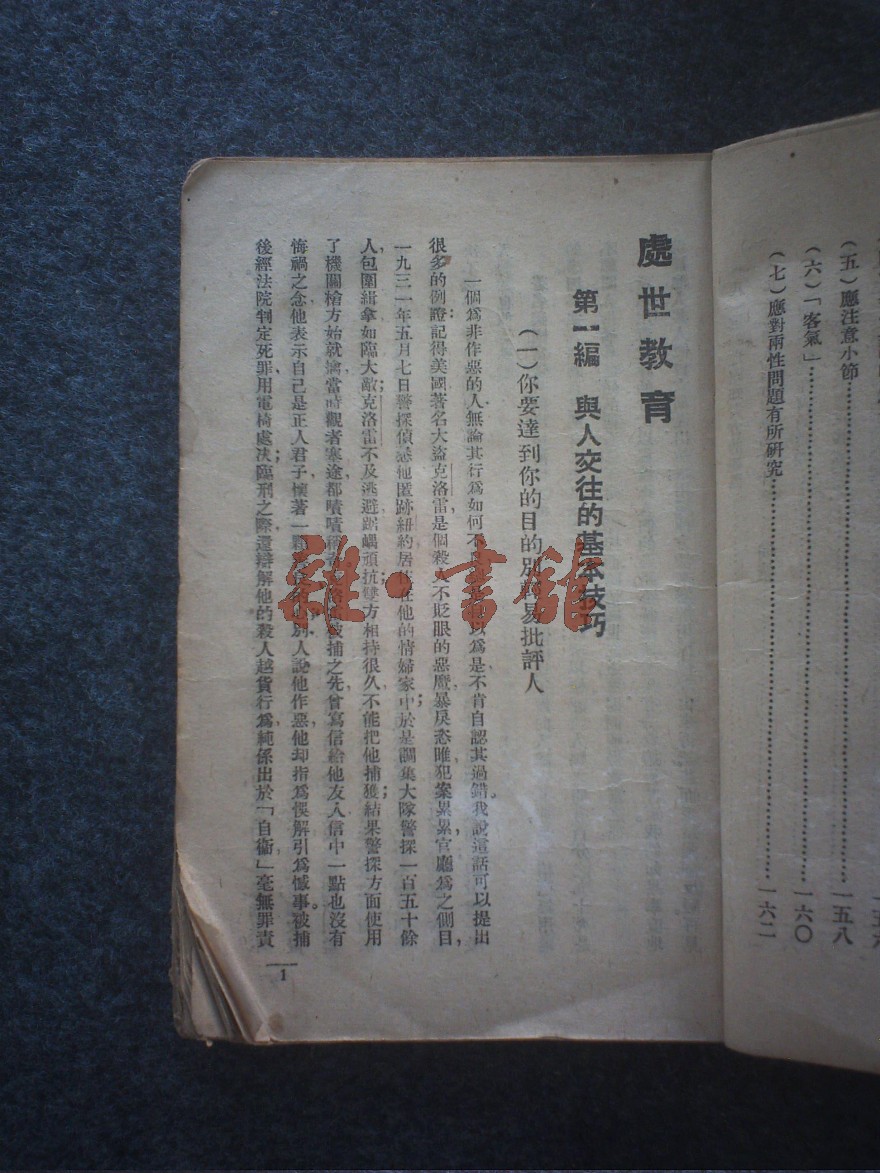 (五)應注意小節……一五八
(六)「客氣」……一六〇
(七)應對兩性問題有所研究……一六二
處世教育
第一編 與人交往的基本技巧
(一)你要達到你的目的別輕易批評人
一個爲非作惡的人無論其行爲如何不以爲是不肯自認其過錯。我說這話可以提出
很多的例證;記得美國著名大盜克洛雷是個殺人不貶眼的惡魔暴戾恣睢犯案累累,官廳爲之側目,
一九三一年五月七日警探偵悉他匿跡紐約居住在他的情婦家中;於是調集大隊警探一百五十餘
人包圍緝拿如臨大敵,克洛雷不及逃避踞嵎頑抗雙方相持很久不能把他捕獲;結果警探方面使用
了機關槍方始就擒當時觀者塞途都嘖嘖被捕之先曾寫信給他友人信中一點也沒有
悔禍之念他表示自己是正人君子懷著一別人說他作惡,他却指爲悞解引爲憾事。被捕
後經法院判定死罪用電椅處决;臨刑之際還辯解他的殺人越貨行爲純係出於「自衞」毫無罪責
1
雜·書館